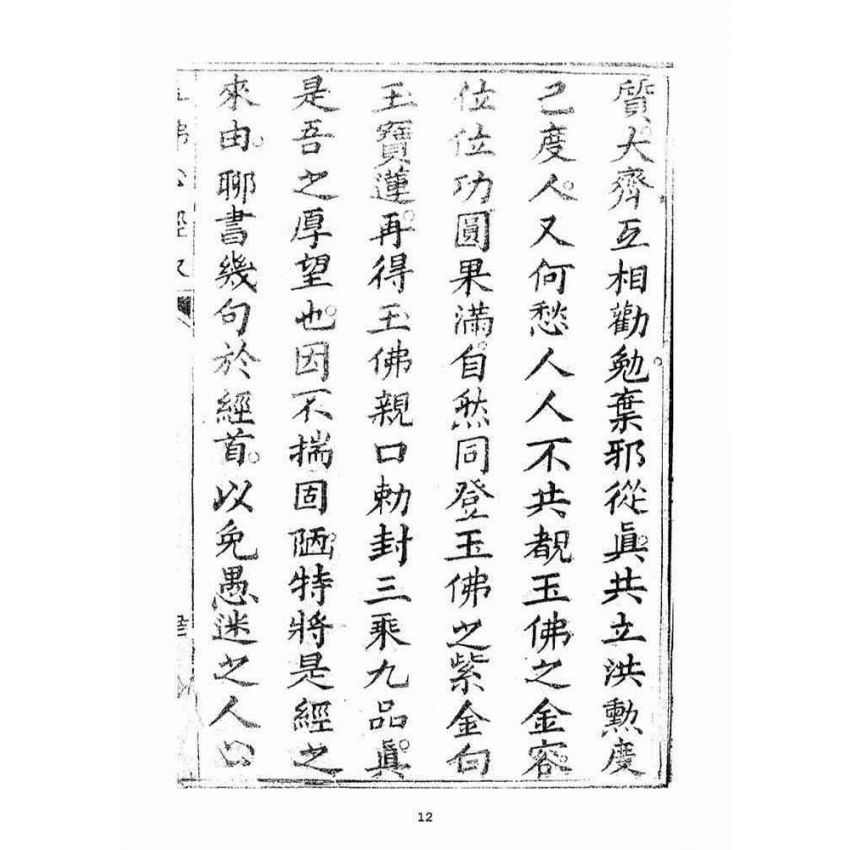 質。大齊互相勸勉。棄邪從真。共立洪勲度
己度人。又何愁人人不共覩玉佛之金容
位位功圓果滿。自然同登玉佛之紫金白
玉寶蓮。再得玉佛親口勅封三乘九品。真
是吾之厚望也。因不揣固陋。特將是經之
來由。聊書幾句於經首。以免愚迷之人
佛公經文
12